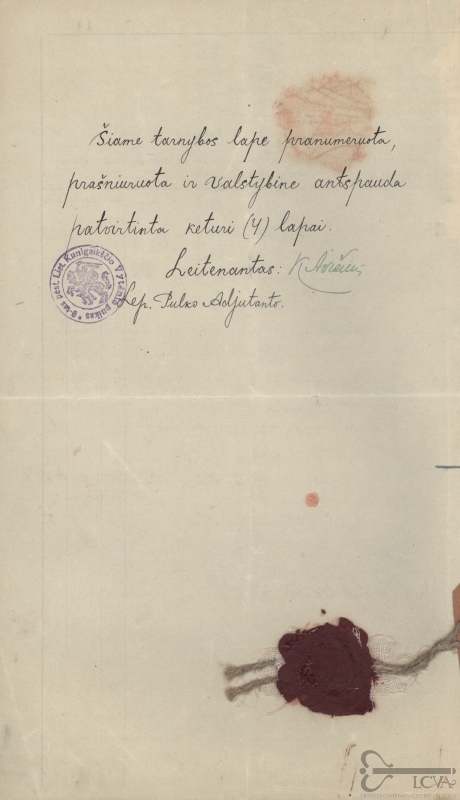 Šiame tarnybos lape pranumeruota,
prašniuruota ir Valstybine antspauda
patvirtinta keturi (4) lapai.
Leitenantas:
Lep. Pulko Adjutanto.
9-tas pėst. Liet. Kunigaikščio Vytenio pulkas
LCVA